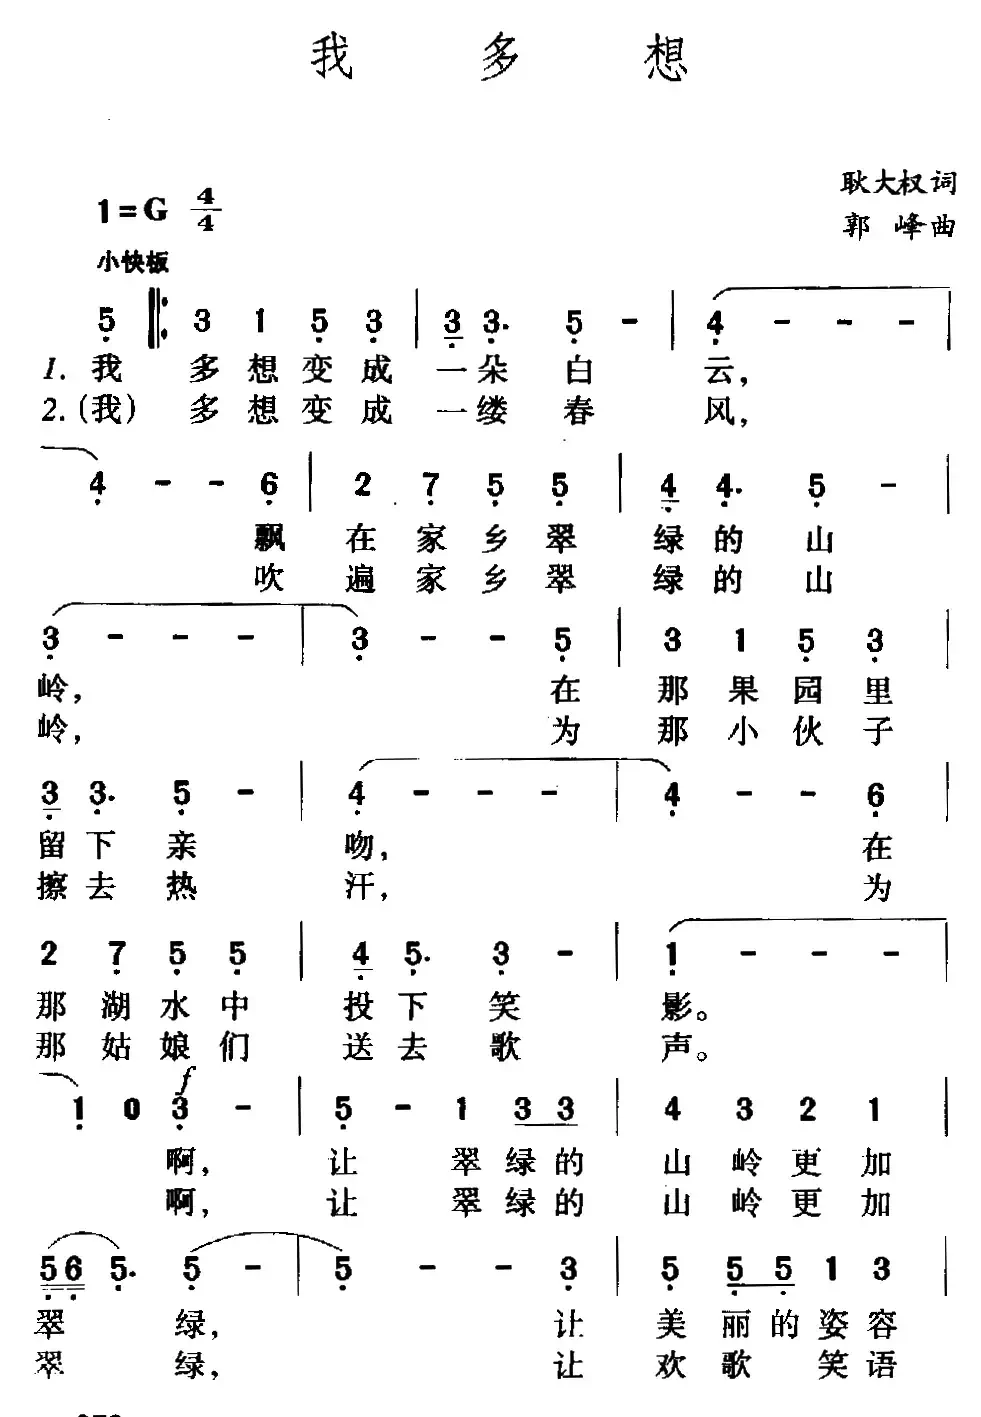 我 多 想
耿大权词
1=G 4/4
郭 峰曲
小快板
5 ‖: 3 1 5 3 | 3 3. 5 - | 4 - - - |
1. 我 多 想 变 成 一 朵 白 云，
2.（我）多 想 变 成 一 缕 春 风，
4 - - 6 | 2 7 5 5 | 4 4. 5 - |
飘 在 家 乡 翠 绿 的 山
吹 遍 家 乡 翠 绿 的 山
3 - - - | 3 - - 5 | 3 1 5 3 |
岭， 在 那 果 园 里
岭， 为 那 小 伙 子
3 3. 5 - | 4 - - - | 4 - - 6 |
留 下 亲 吻， 在
擦 去 热 汗， 为
2 7 5 5 | 4 5. 3 - | 1 - - - |
那 湖 水 中 投 下 笑 影。
那 姑 娘 们 送 去 歌 声。
f
1 0 3 - | 5 - 1 3 3 | 4 3 2 1 |
啊， 让 翠 绿 的 山 岭 更 加
啊， 让 翠 绿 的 山 岭 更 加
5 6 5. 5 - | 5 - - 3 | 5 5 5 1 3 |
翠 绿， 让 美 丽 的 姿 容
翠 绿， 让 欢 歌 笑 语